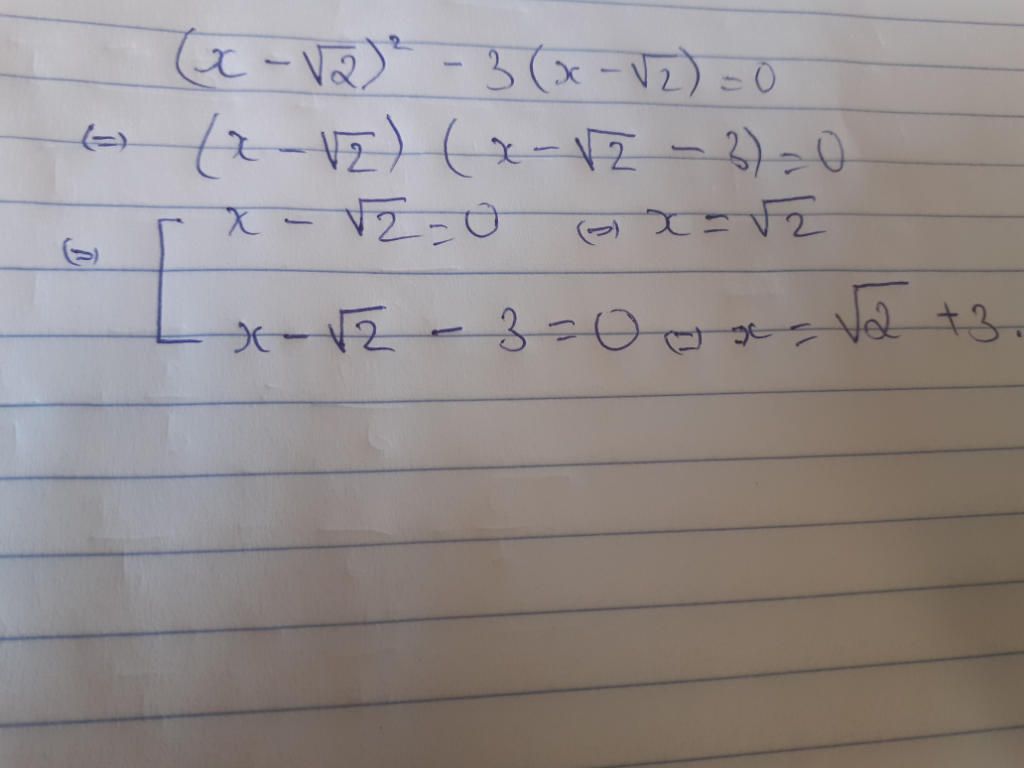 (x - √2)² - 3(x - √2) = 0
(=) (x - √2) (x - √2 - 3) = 0
(=) [ x - √2 = 0 (=) x = √2
x - √2 - 3 = 0 (=) x = √2 + 3.